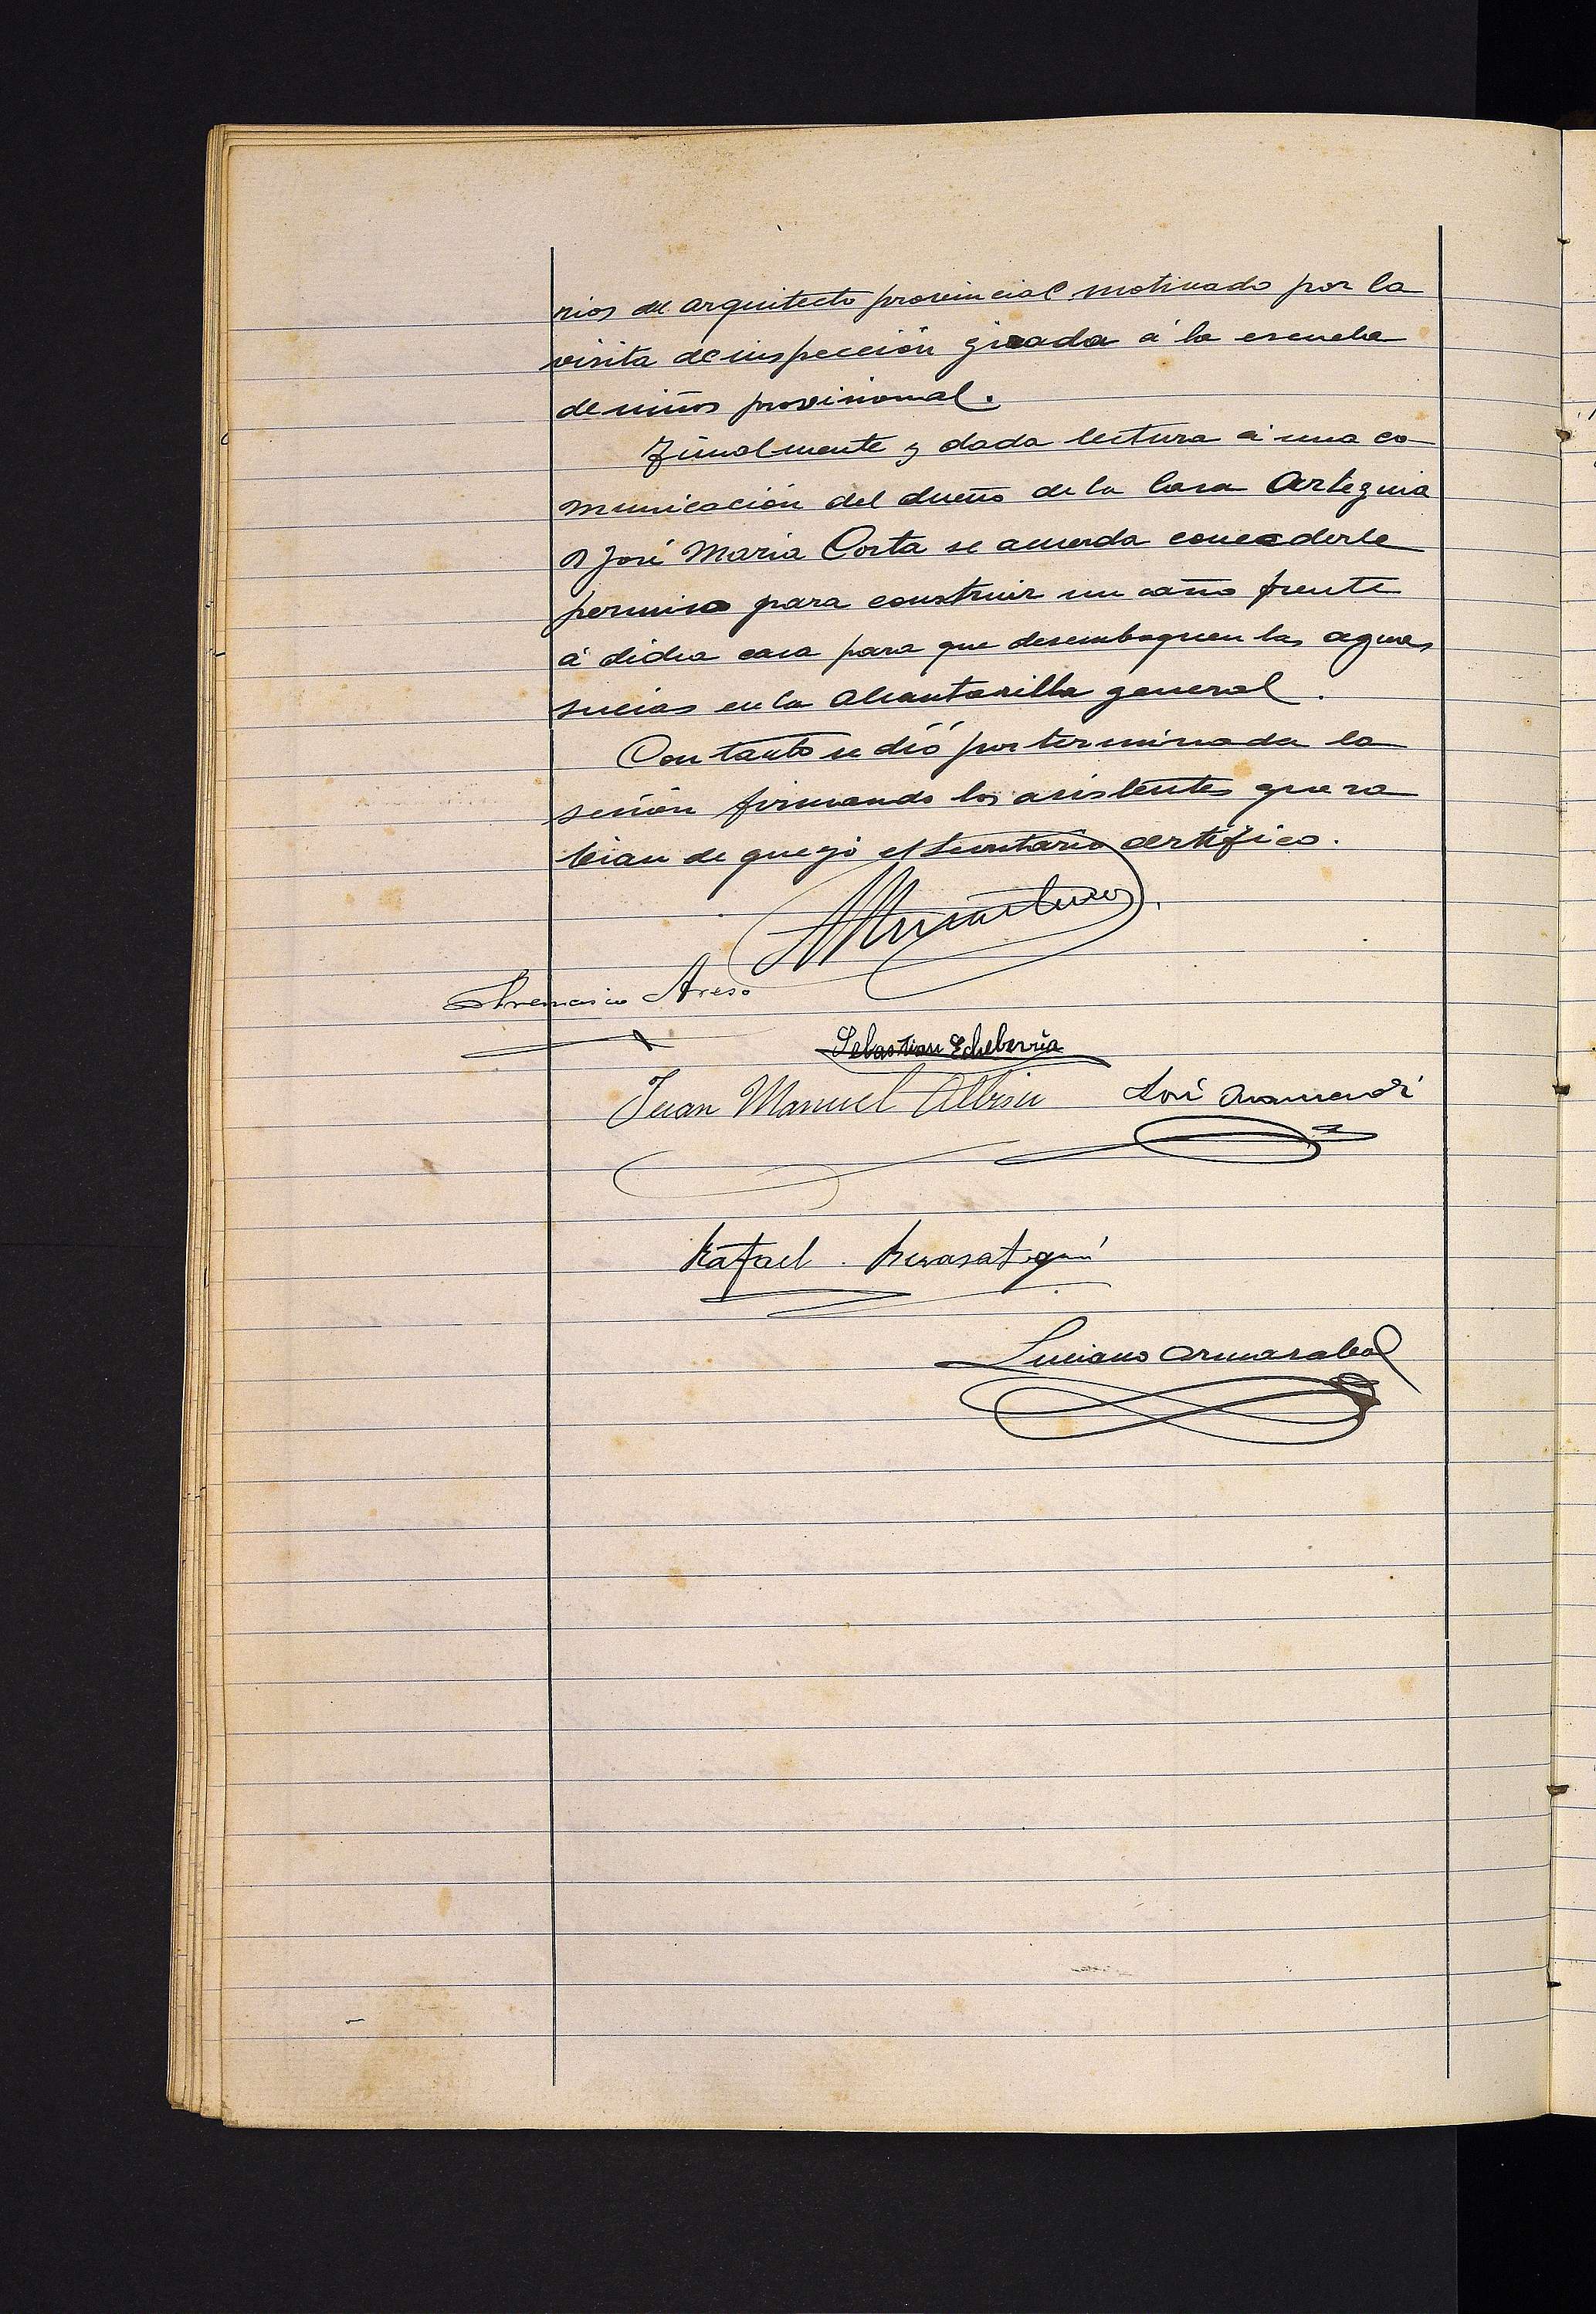 rios del arquitecto provincial motivado por la
visita de inspección girada á la escuela
de niños provisional.
Finalmente y dada lectura á una co-
municación del dueño de la Casa Arteguia
D José Maria Corta se acuerda concederle
permiso para construir un caño frente
á dicha casa para que desemboquen las aguas
sucias en la alcantarilla general.
Con tanto se dió por terminada la
sesión firmando los asistentes que sa
bian de que yó el Secretario certifico.
Francisco Areso
Sebastian Echeberria
Juan Manuel Albisu José Aramendi
Rafael Berasategui
Luciano Armasabal